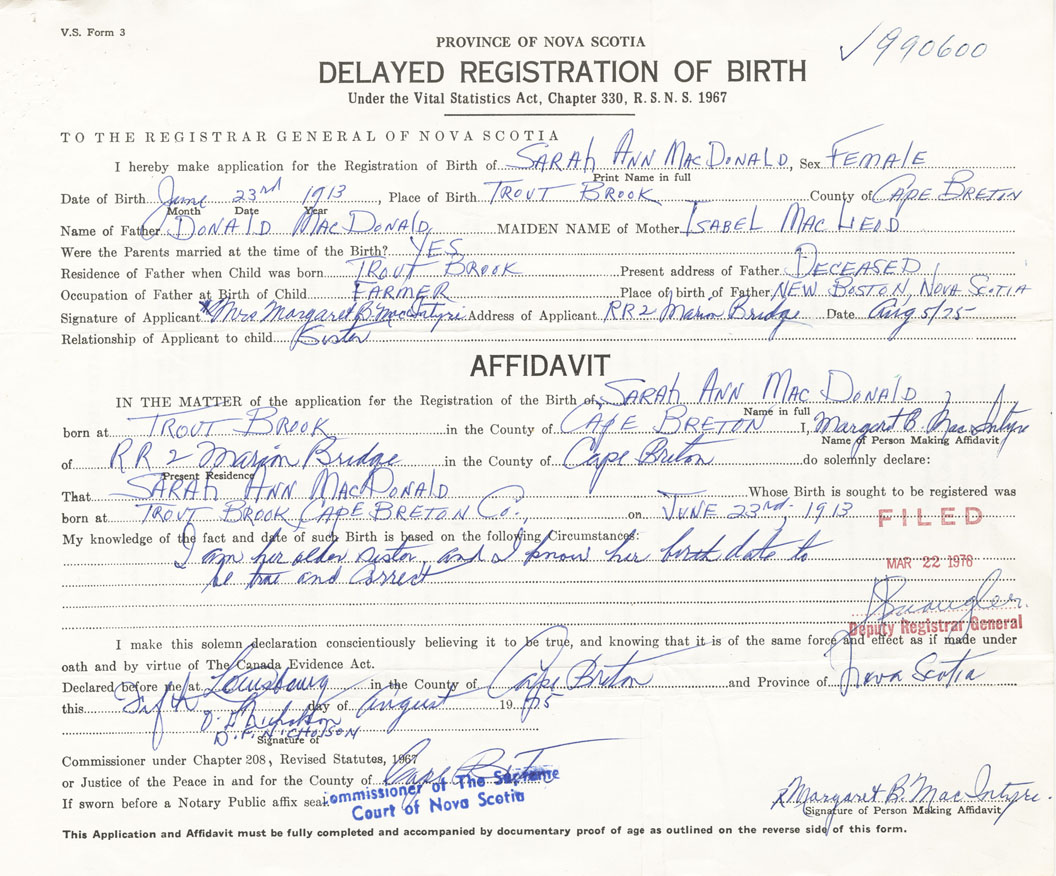 V.S. Form 3
PROVINCE OF NOVA SCOTIA
✓990600
DELAYED REGISTRATION OF BIRTH
Under the Vital Statistics Act, Chapter 330, R. S. N. S. 1967
TO THE REGISTRAR GENERAL OF NOVA SCOTIA
I hereby make application for the Registration of Birth of SARAH ANN MACDONALD, Sex FEMALE
Print Name in full
Date of Birth June 23rd 1913, Place of Birth TROUT BROOK County of CAPE BRETON
Month Date Year
Name of Father DONALD MACDONALD, MAIDEN NAME of Mother ISABEL MAC LEOD
Were the Parents married at the time of the Birth? YES
Residence of Father when Child was born TROUT BROOK Present address of Father DECEASED
Occupation of Father at Birth of Child FARMER Place of birth of Father NEW BOSTON, NOVA SCOTIA
Signature of Applicant Mrs Margaret B. MacIntyre Address of Applicant RR2 Marion Bridge Date Aug 5/75
Relationship of Applicant to child Sister
AFFIDAVIT
IN THE MATTER of the application for the Registration of the Birth of SARAH ANN MAC DONALD,
Name in full
born at TROUT BROOK in the County of CAPE BRETON I, Margaret B. MacIntyre
Name of Person Making Affidavit
of RR2 Marion Bridge in the County of Cape Breton do solemnly declare:
Present Residence
That SARAH ANN MACDONALD Whose Birth is sought to be registered was
born at TROUT BROOK CAPE BRETON Co., on JUNE 23rd, 1913
FILED
My knowledge of the fact and date of such Birth is based on the following Circumstances:
I am her older sister, and I know her birth date to
be true and correct
MAR 22 1976
Deputy Registrar General
I make this solemn declaration conscientiously believing it to be true, and knowing that it is of the same force and effect as if made under
oath and by virtue of The Canada Evidence Act.
Declared before me at Louisbourg in the County of Cape Breton and Province of Nova Scotia
this Fifth day of August 1975
D. F. Nicholson
D. F. NICHOLSON
Signature of
Commissioner under Chapter 208, Revised Statutes, 1967
or Justice of the Peace in and for the County of Cape Breton
If sworn before a Notary Public affix seal.
Commissioner of The Supreme
Court of Nova Scotia
Margaret B. MacIntyre
Signature of Person Making Affidavit
This Application and Affidavit must be fully completed and accompanied by documentary proof of age as outlined on the reverse side of this form.